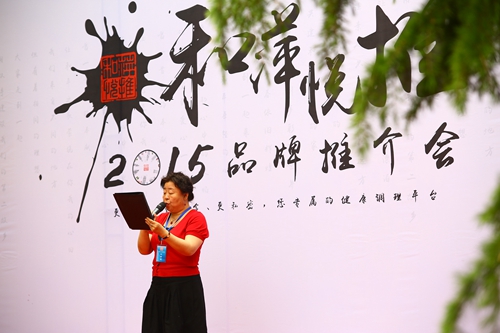 和萍悦推
2015品牌推介会
更 、更私密,您专属的健康调理平台